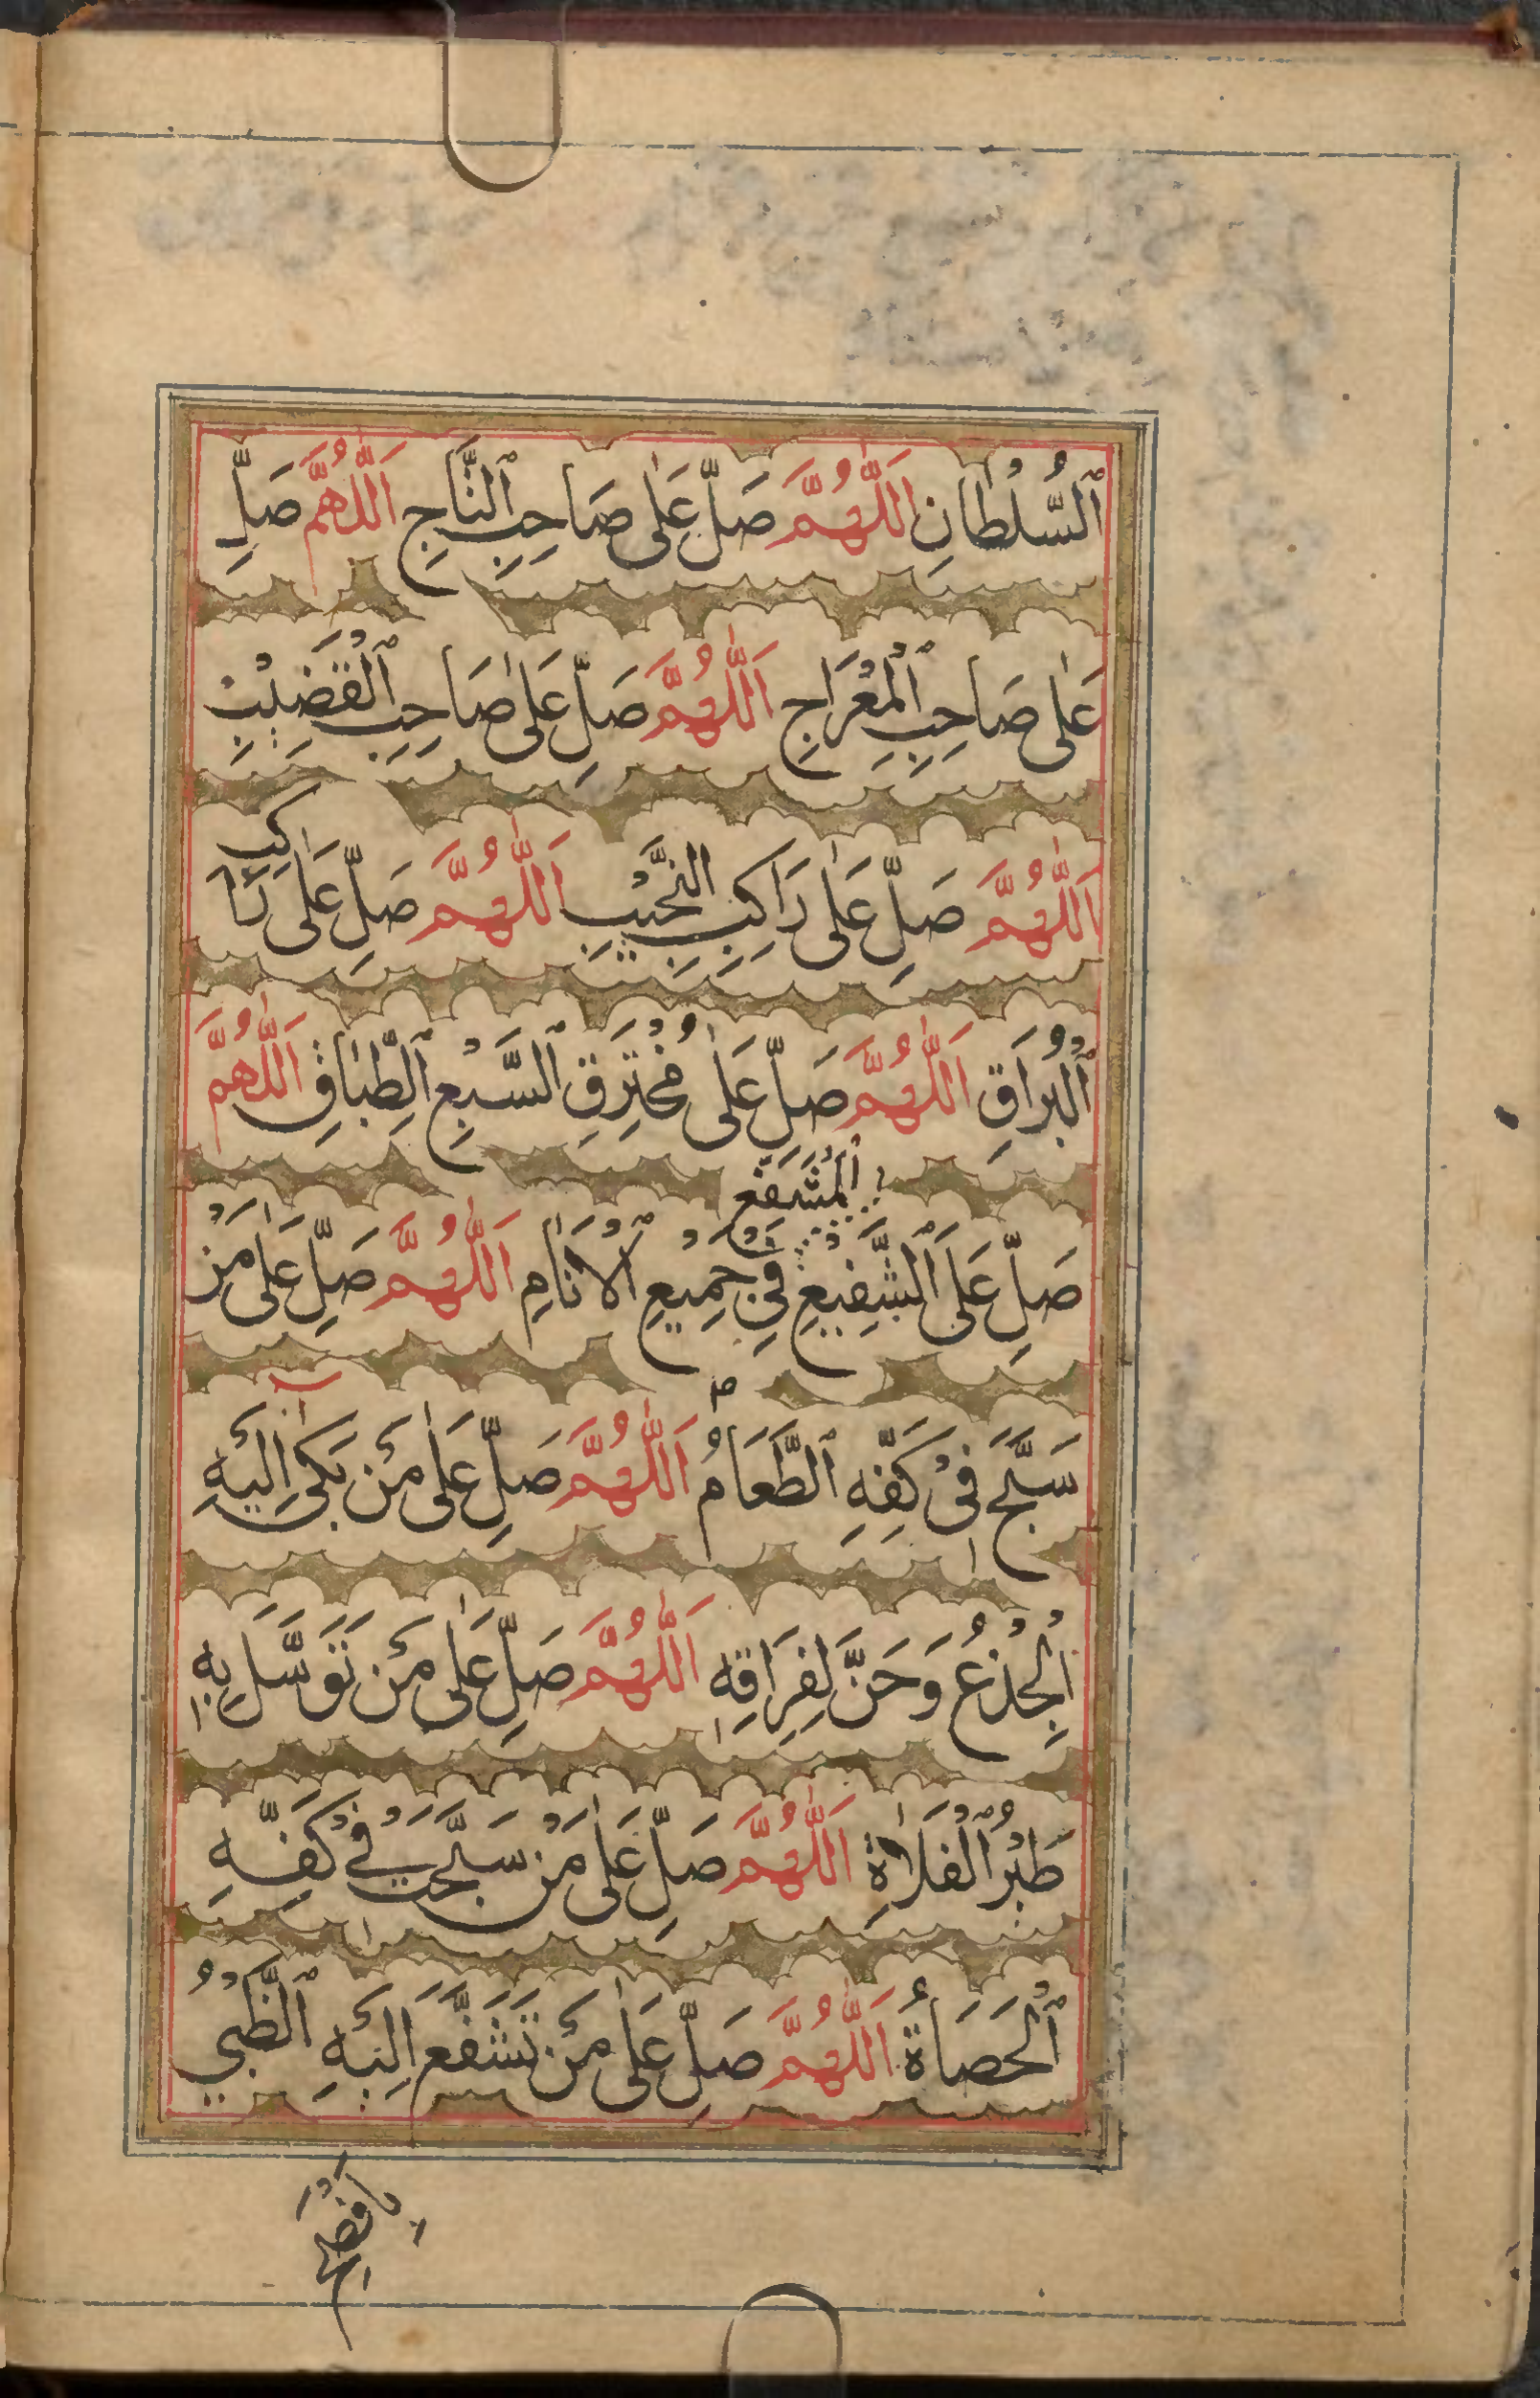 ٱلسُّلْطَانِ اَللّٰهُمَّ صَلِّ عَلٰى صَاحِبِ ٱلتَّاجِ اَللّٰهُمَّ صَلِّ
عَلٰى صَاحِبِ ٱلْمِعْرَاجِ اَللّٰهُمَّ صَلِّ عَلٰى صَاحِبِ ٱلْقَضِيْبِ
اَللّٰهُمَّ صَلِّ عَلٰى رَاكِبِ النَّجِيْبِ اَللّٰهُمَّ صَلِّ عَلٰى رَاكِبِ
ٱلْبُرَاقِ اَللّٰهُمَّ صَلِّ عَلٰى مُخْتَرِقِ ٱلسَّبْعِ ٱلطِّبَاقِ اَللّٰهُمَّ
ٱلْمُشَفَّعِ
صَلِّ عَلَى ٱلشَّفِيْعِ فِيْ جَمِيْعِ ٱلْاَنَامِ اَللّٰهُمَّ صَلِّ عَلٰى مَنْ
سَبَّحَ فِيْ كَفِّهِ ٱلطَّعَامُ اَللّٰهُمَّ صَلِّ عَلٰى مَنْ بَكٰى اِلَيْهِ
الْجِذْعُ وَحَنَّ لِفِرَاقِهٖ اَللّٰهُمَّ صَلِّ عَلٰى مَنْ تَوَسَّلَ بِهٖ
طَيْرُ ٱلْفَلَاةِ اَللّٰهُمَّ صَلِّ عَلٰى مَنْ سَبَّحَتْ فِيْ كَفِّهِ
ٱلْحَصَاةُ اَللّٰهُمَّ صَلِّ عَلٰى مَنْ تَشَفَّعَ اِلَيْهِ ٱلظَّبْيُ
بِاَفْصَحِ